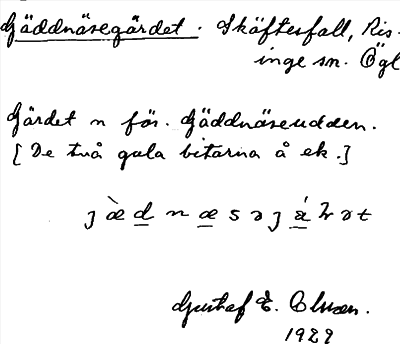 Gäddnäsegärdet. Skäftesfall, Ris-
inge sn. Ögl
Gärdet n för. Gäddnäseudden.
[De två gula bitarna å ek.]
j æ̀ d n æ s ə j ǽ ɽ ə t
Gustaf E.
1922